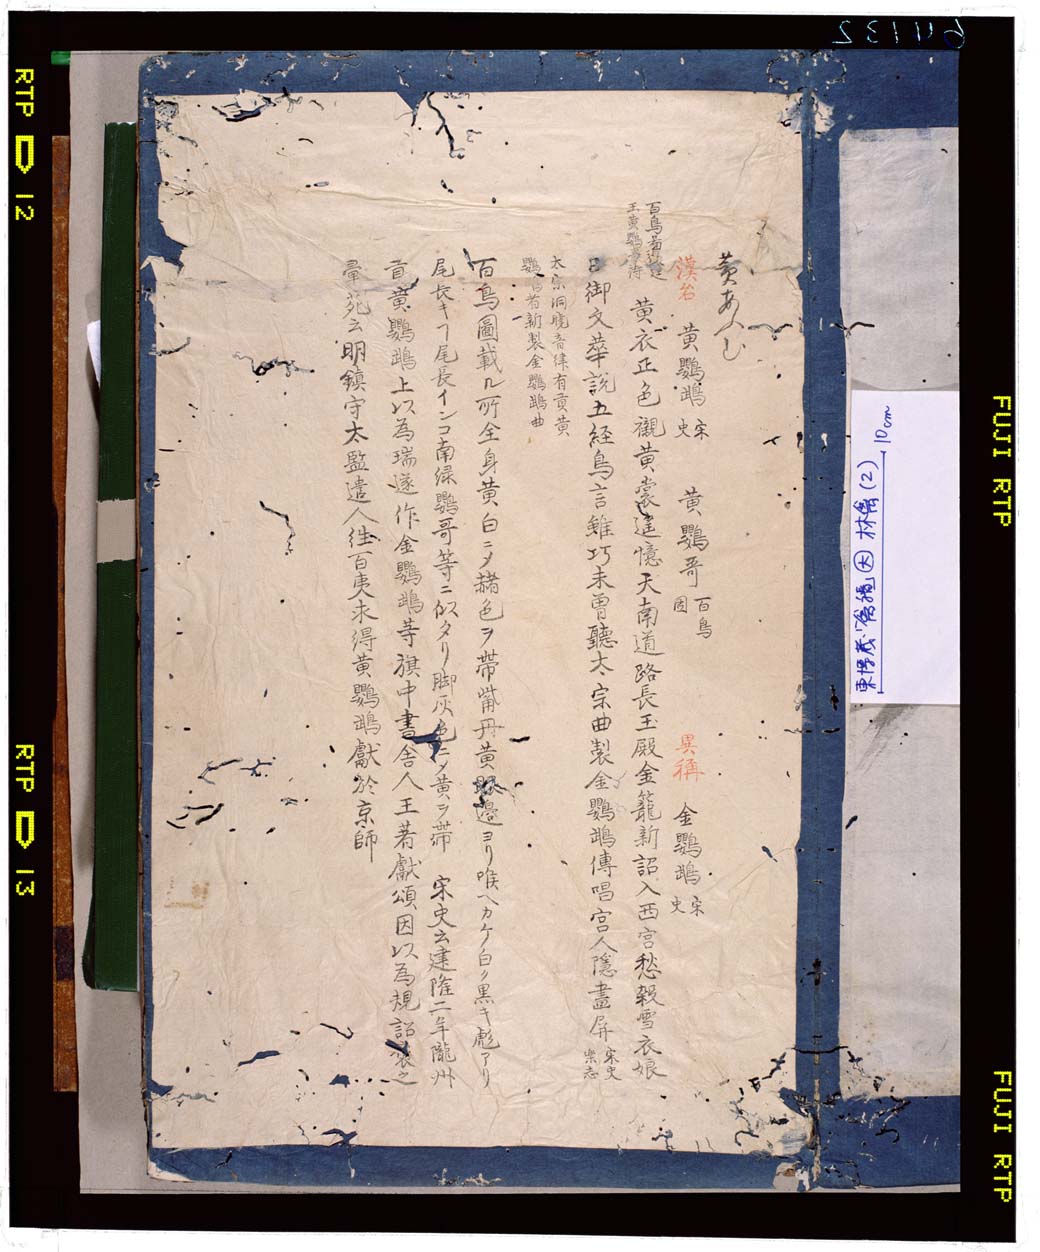 黄あふむ
漢名 黄鸚鵡 宋史 黄鸚哥 百鳥図 異稱 金鸚鵡 宋史
百鳥
王黄鸚
黄衣正色襯黄裳遙憶天南道路長玉殿金籠新詔入西宮愁殺雪衣娘
御文華説五経鳥言雖巧未曽聽太宗曲製金鸚鵡傳唱宮人隱畫屏 宋史樂志
太宗洞曉音律有貢黄
鸚鵡者新製金鸚鵡曲
百鳥圖載ル所全身黄白ニメ赭色ヲ帯觜丹黄邊ヨリ喉ヘカケ白ク黒キ彪アリ
尾長キフ尾長インコ南緑鸚哥等ニ似タリ脚灰色ニメ黄ヲ帯 宋史云建隆二年隴州
貢黄鸚鵡上以為瑞遂作金鸚鵡等旗中書舎人王著獻頌因以為規詔裝之
彙苑云明鎮守太監遣人徃百夷求得黄鸚鵡獻於京師
(2)
10cm
64132
RTP D 12
RTP D 13
FUJI RTP
FUJI RTP